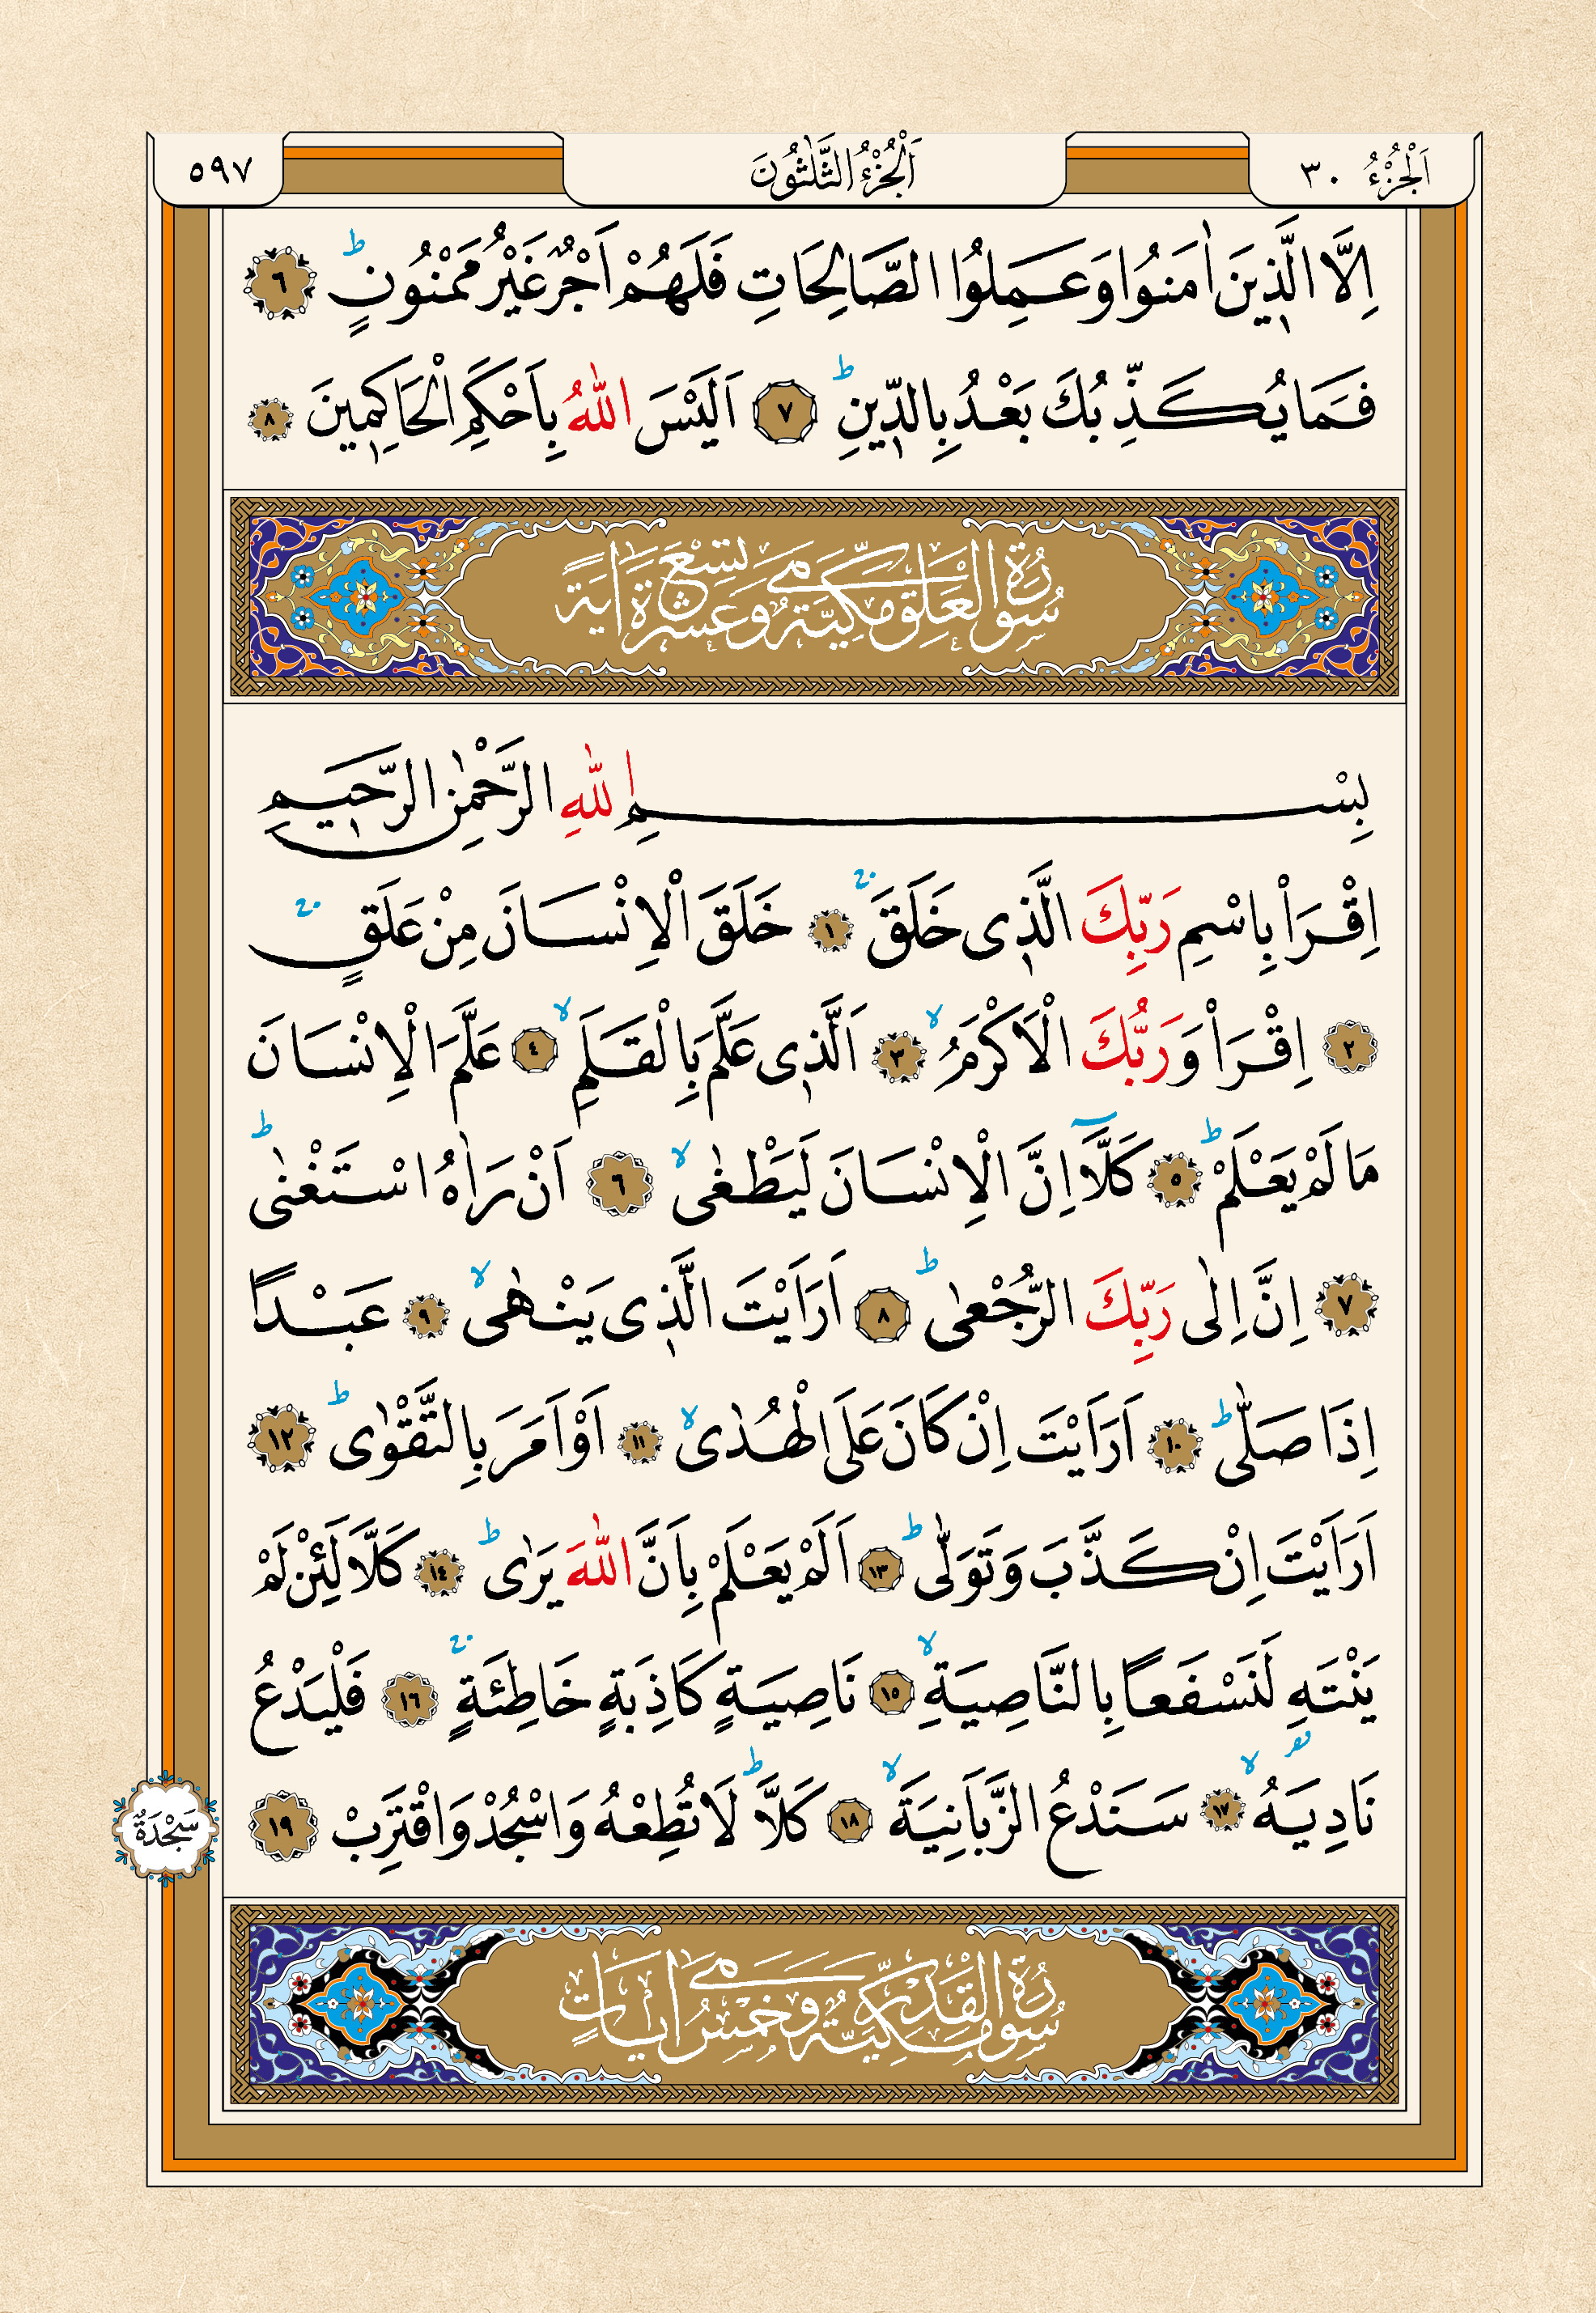 اَلْجُزْءُ ٣٠
اَلْجُزْءُ الثَّلٰثُونَ
٥٩٧
اِلَّا الَّذ۪ينَ اٰمَنُوا وَعَمِلُوا الصَّالِحَاتِ فَلَهُمْ اَجْرٌ غَيْرُ مَمْنُونٍۜ ٦
فَمَا يُكَذِّبُكَ بَعْدُ بِالدّ۪ينِۜ ٧ اَلَيْسَ اللّٰهُ بِاَحْكَمِ الْحَاكِم۪ينَ ٨
سُورَةُ الْعَلَقِ مَكِّيَّةٌ وَهِيَ تِسْعَ عَشْرَةَ اٰيَةً
بِسْمِ اللّٰهِ الرَّحْمٰنِ الرَّح۪يمِ
اِقْرَاْ بِاسْمِ رَبِّكَ الَّذ۪ي خَلَقَۚ ١ خَلَقَ الْاِنْسَانَ مِنْ عَلَقٍۚ
٢ اِقْرَاْ وَرَبُّكَ الْاَكْرَمُۙ ٣ اَلَّذ۪ي عَلَّمَ بِالْقَلَمِۙ ٤ عَلَّمَ الْاِنْسَانَ
مَا لَمْ يَعْلَمْۜ ٥ كَلَّٓا اِنَّ الْاِنْسَانَ لَيَطْغٰىۙ ٦ اَنْ رَاٰهُ اسْتَغْنٰىۜ
٧ اِنَّ اِلٰى رَبِّكَ الرُّجْعٰىۜ ٨ اَرَاَيْتَ الَّذ۪ي يَنْهٰىۙ ٩ عَبْدًا
اِذَا صَلّٰىۜ ١٠ اَرَاَيْتَ اِنْ كَانَ عَلَى الْهُدٰىۙ ١١ اَوْ اَمَرَ بِالتَّقْوٰىۜ ١٢
اَرَاَيْتَ اِنْ كَذَّبَ وَتَوَلّٰىۜ ١٣ اَلَمْ يَعْلَمْ بِاَنَّ اللّٰهَ يَرٰىۜ ١٤ كَلَّا لَئِنْ لَمْ
يَنْتَهِ لَنَسْفَعًا بِالنَّاصِيَةِۙ ١٥ نَاصِيَةٍ كَاذِبَةٍ خَاطِئَةٍۚ ١٦ فَلْيَدْعُ
نَادِيَهُۙ ١٧ سَنَدْعُ الزَّبَانِيَةَۙ ١٨ كَلَّاۜ لَا تُطِعْهُ وَاسْجُدْ وَاقْتَرِبْ ١٩
سَجْدَةٌ
سُورَةُ الْقَدْرِ مَكِّيَّةٌ وَهِيَ خَمْسُ اٰيَاتٍ